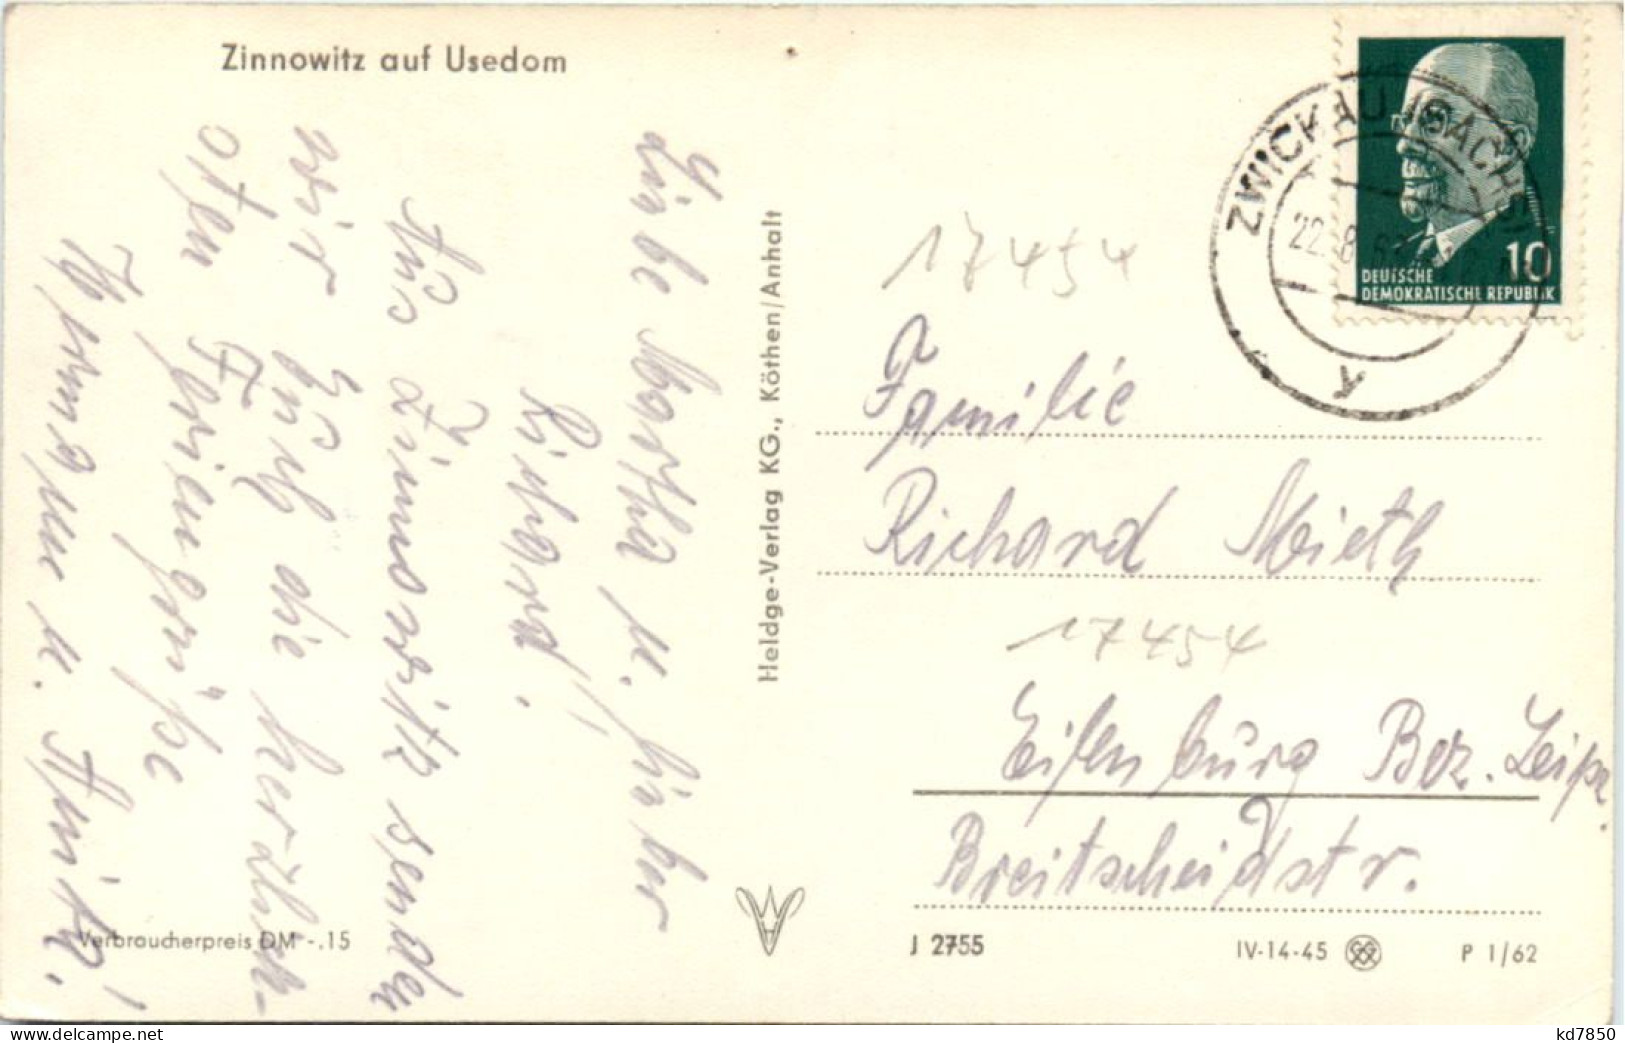 Zinnowitz auf Usedom
Liebe Martha u. lieber
Richard!
Aus Zinnowitz senden
wir Euch die herzlich-
sten Feriengrüße
Hermann u. Anita!
Verbraucherpreis DM -.15
Heldge-Verlag KG., Köthen/Anhalt
ZWICKAU (SACHS)
22.8.62
10
DEUTSCHE
DEMOKRATISCHE REPUBLIK
17454
Familie
Richard Mieth
17454
Eilenburg Bez. Leipz.
Breitscheidstr.
J 2755
IV-14-45
P 1/62
kd7850